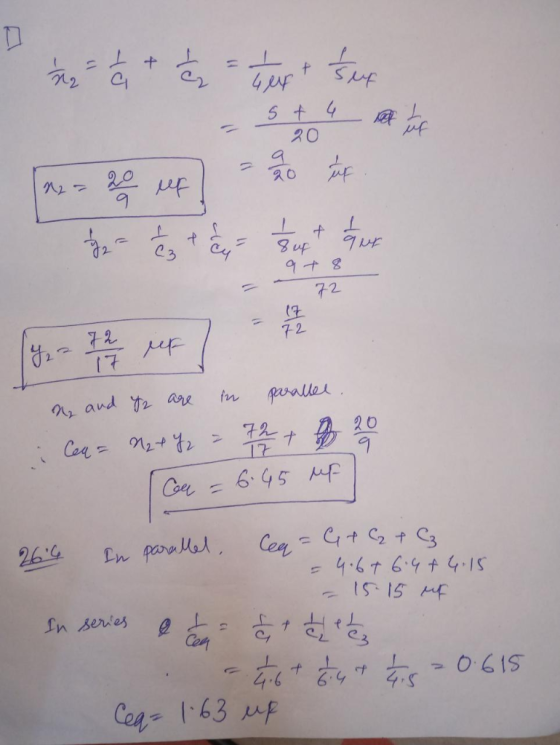 1]
1/x₂ = 1/C₁ + 1/C₂ = 1/4μf + 1/5μf
= (5 + 4)/20 1/μf
= 9/20 1/μf
x₂ = 20/9 μf
1/y₂ = 1/C₃ + 1/C₄ = 1/8μf + 1/9μf
= (9 + 8)/72
= 17/72
y₂ = 72/17 μf
x₂ and y₂ are in parallel.
∴ Ceq = x₂ + y₂ = 72/17 + 20/9
Ceq = 6.45 μf
26.4 In parallel. Ceq = C₁ + C₂ + C₃
= 4.6 + 6.4 + 4.15
= 15.15 μf
In series 1/Ceq = 1/C₁ + 1/C₂ + 1/C₃
= 1/4.6 + 1/6.4 + 1/4.5 = 0.615
Ceq = 1.63 μf